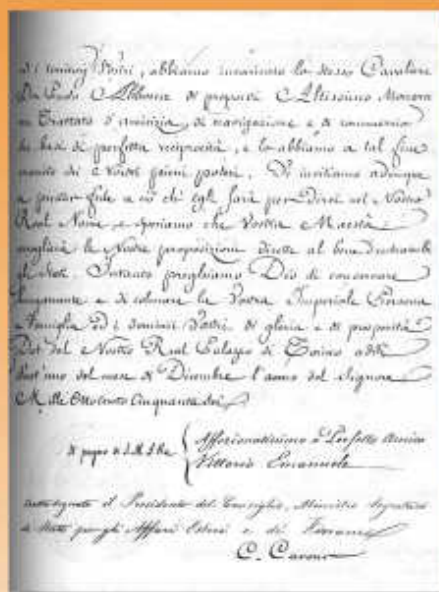 ed i dominj Vostri, abbiamo incaricato lo stesso Cavaliere
di proporvi Altissimo Monarca
un Trattato d'amicizia, di navigazione e di commercio
su basi di perfetta reciprocità, e lo abbiamo a tal fine
munito dei Nostri pieni poteri. Vi invitiamo adunque
a prestar fede a ciò ch'egli sarà per dirvi nel Nostro
Real Nome, e speriamo che Vostra Maestà
le Nostre proposizioni dirette al bene d'entrambi
gli Stati. Intanto preghiamo Dio di conservare
lungamente e di colmare la Vostra Imperiale Persona
Famiglia ed i dominii Vostri di gloria e di prosperità
Dat. dal Nostro Real Palazzo di Torino addì
del mese di Dicembre l'anno del Signore
Mille Ottocento Cinquanta
Di pugno di S. M. il Re Affezionatissimo e Perfetto Amico
Vittorio Emanuele
il Presidente del Consiglio, Ministro Segretario
di Stato per gli Affari Esteri e di Finanze
C. Cavour